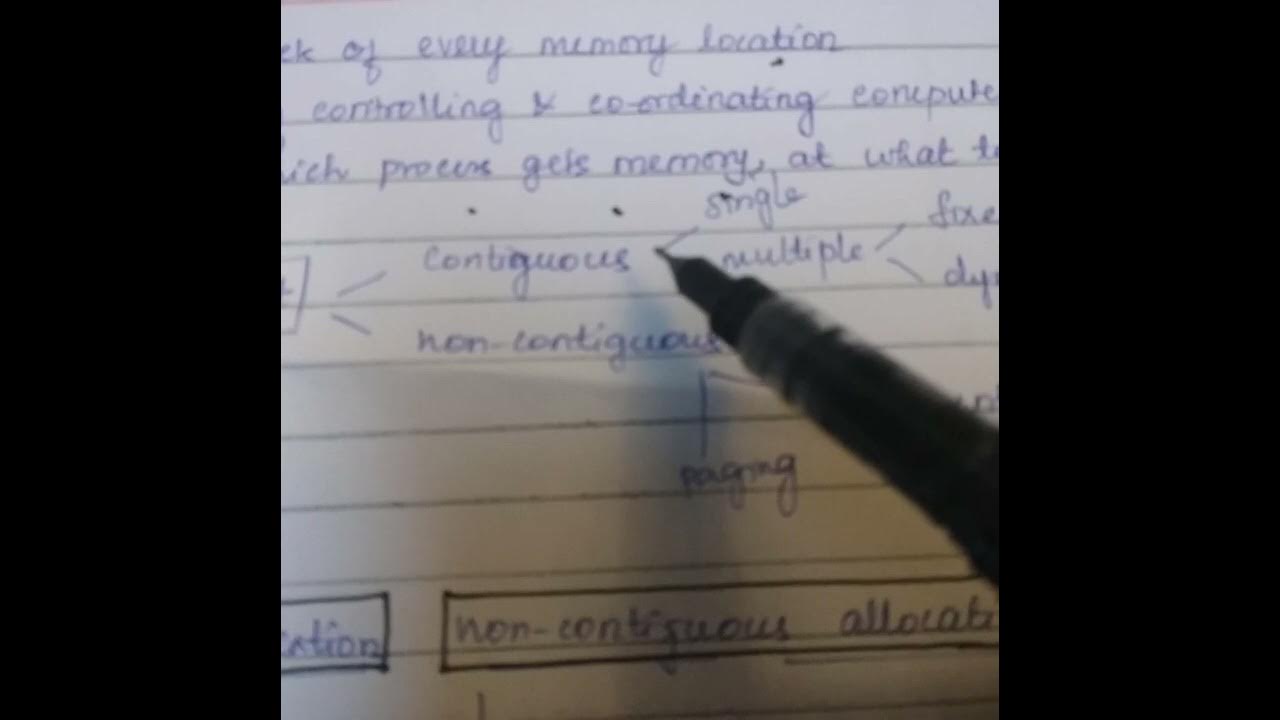 ck of every memory location
controlling & co-ordinating compute
ich process gets memory, at what t
single
contiguous multiple fixe
dyn
non-contiguous
paging
cation non-contiguous allocati